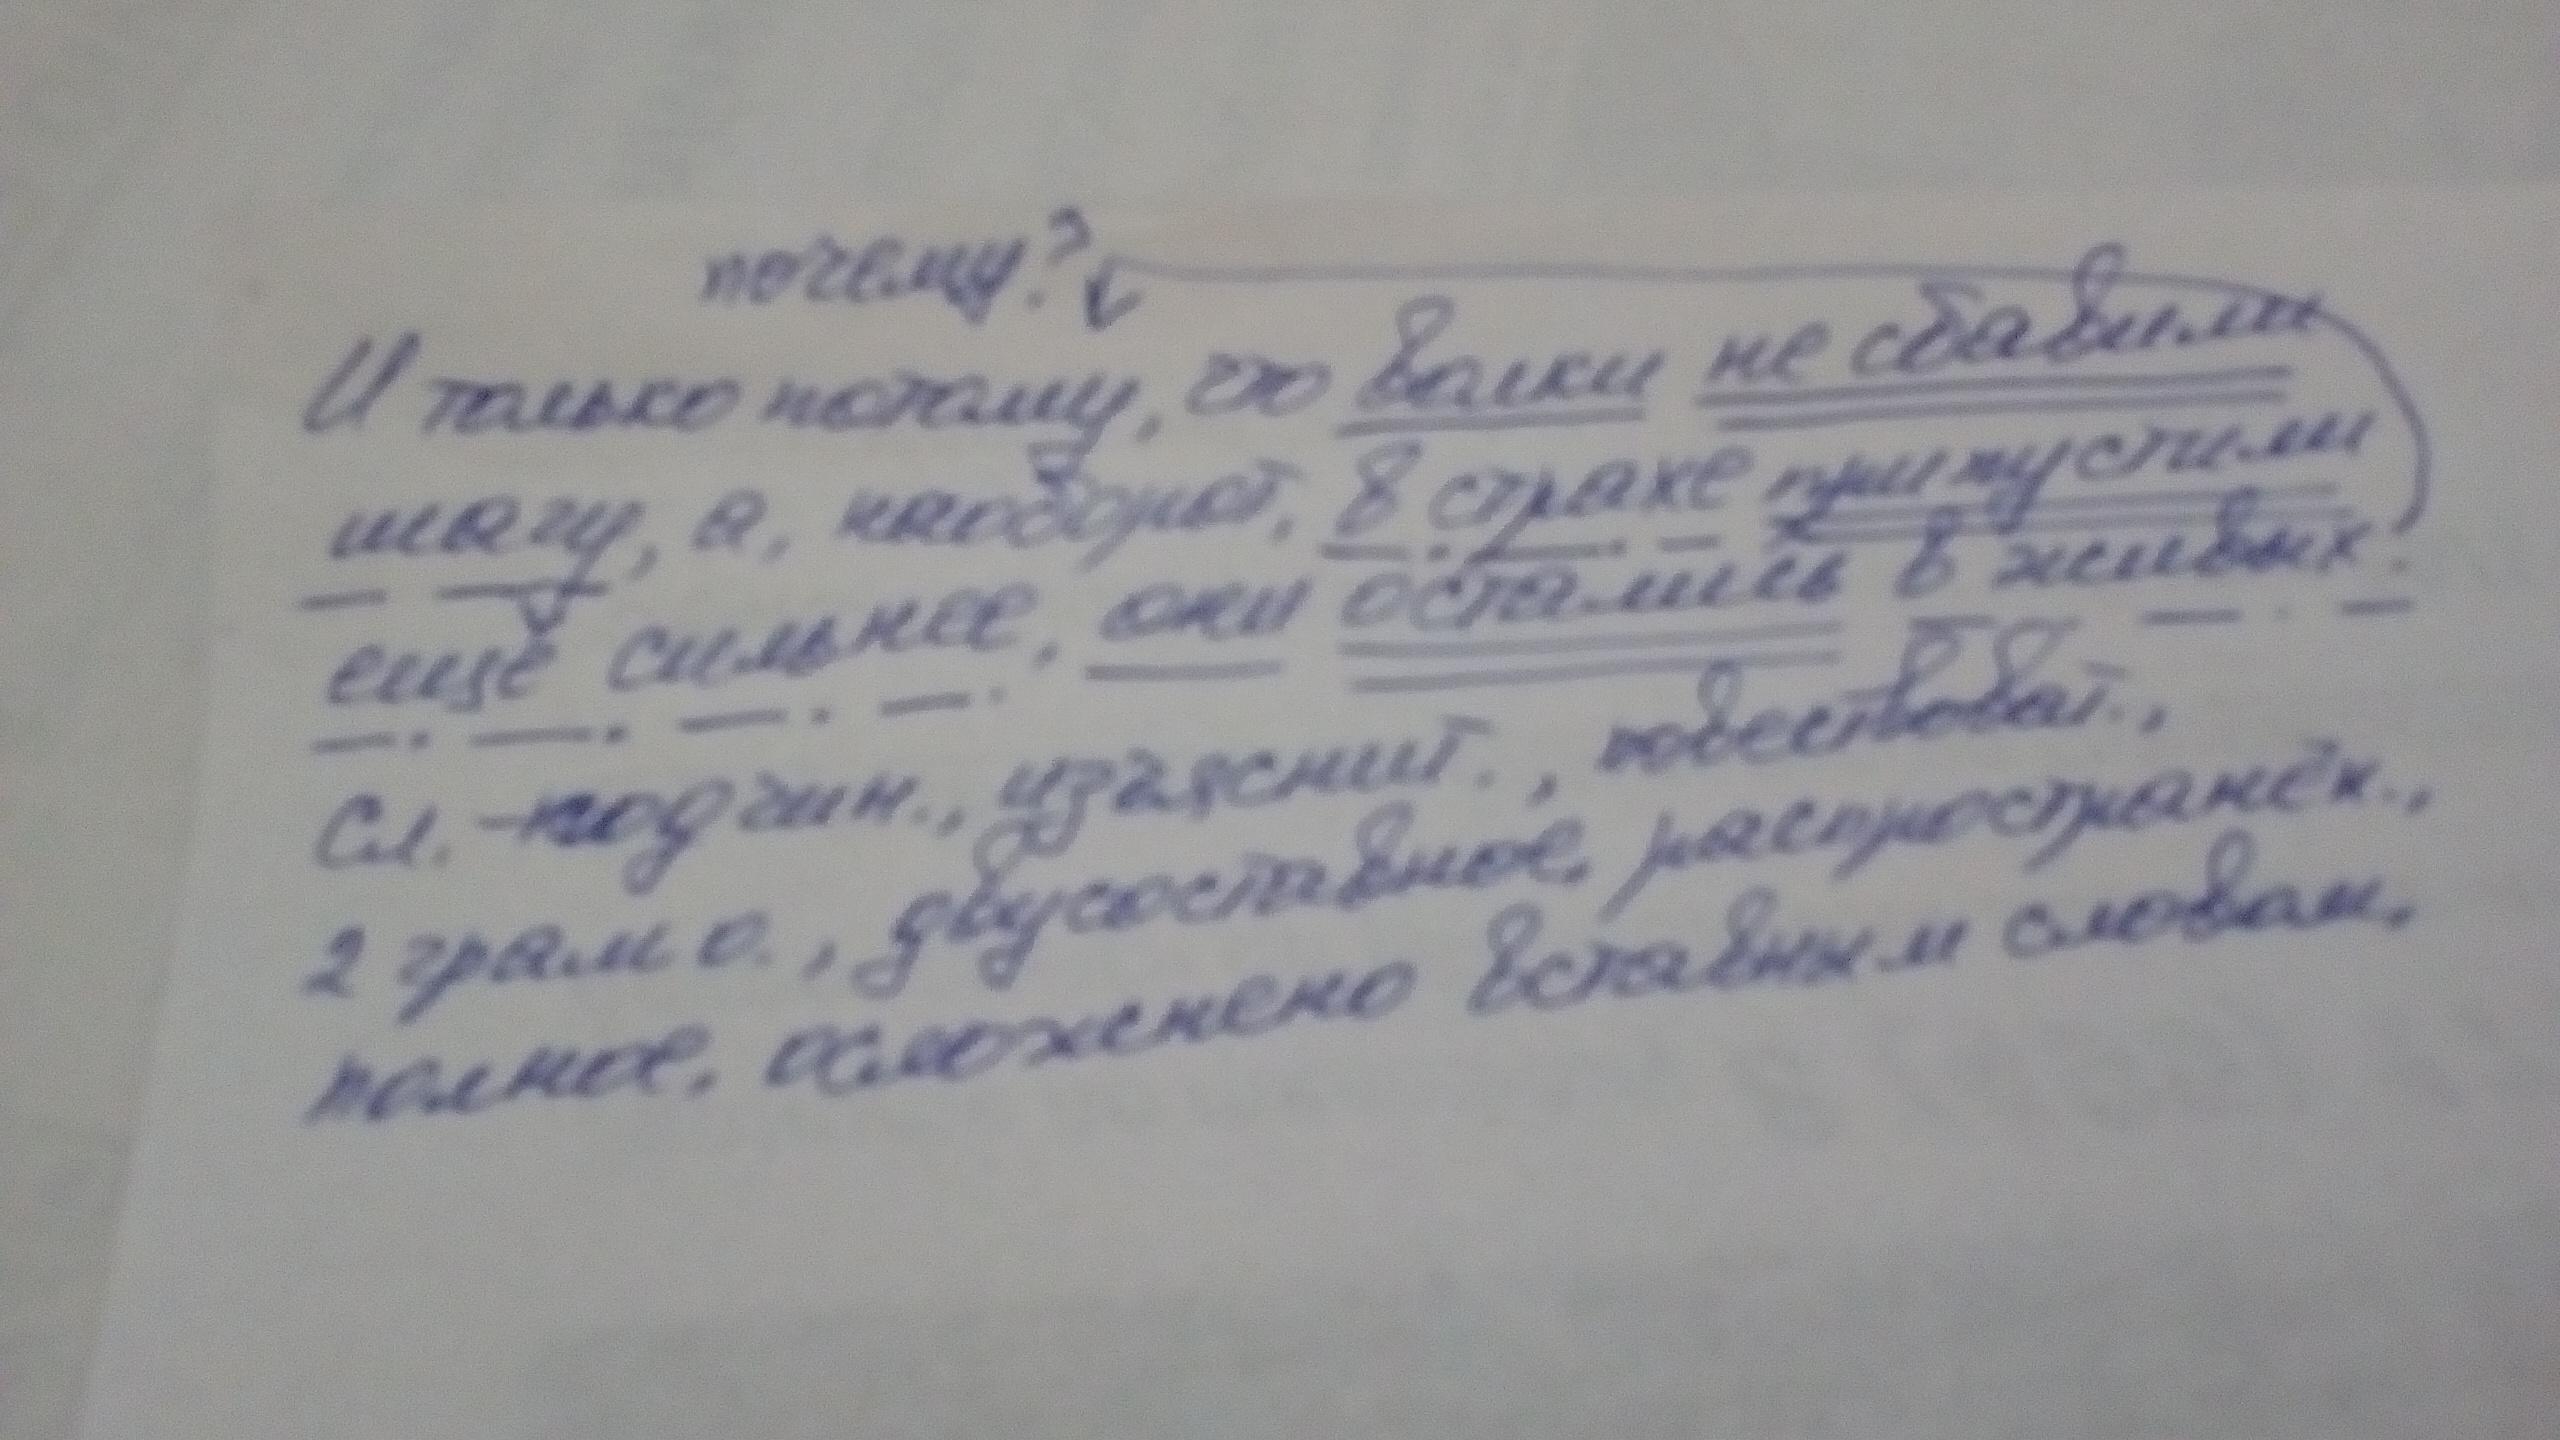 почему?
И только потому, что волки не сбавили
шагу, а, наоборот, в страхе припустили
ещё сильнее, они остались в живых.
Сл.-подчин., изъяснит., повествоват.,
2 грам о., двусоставное, распространён.,
полное, осложнено вставным словом.